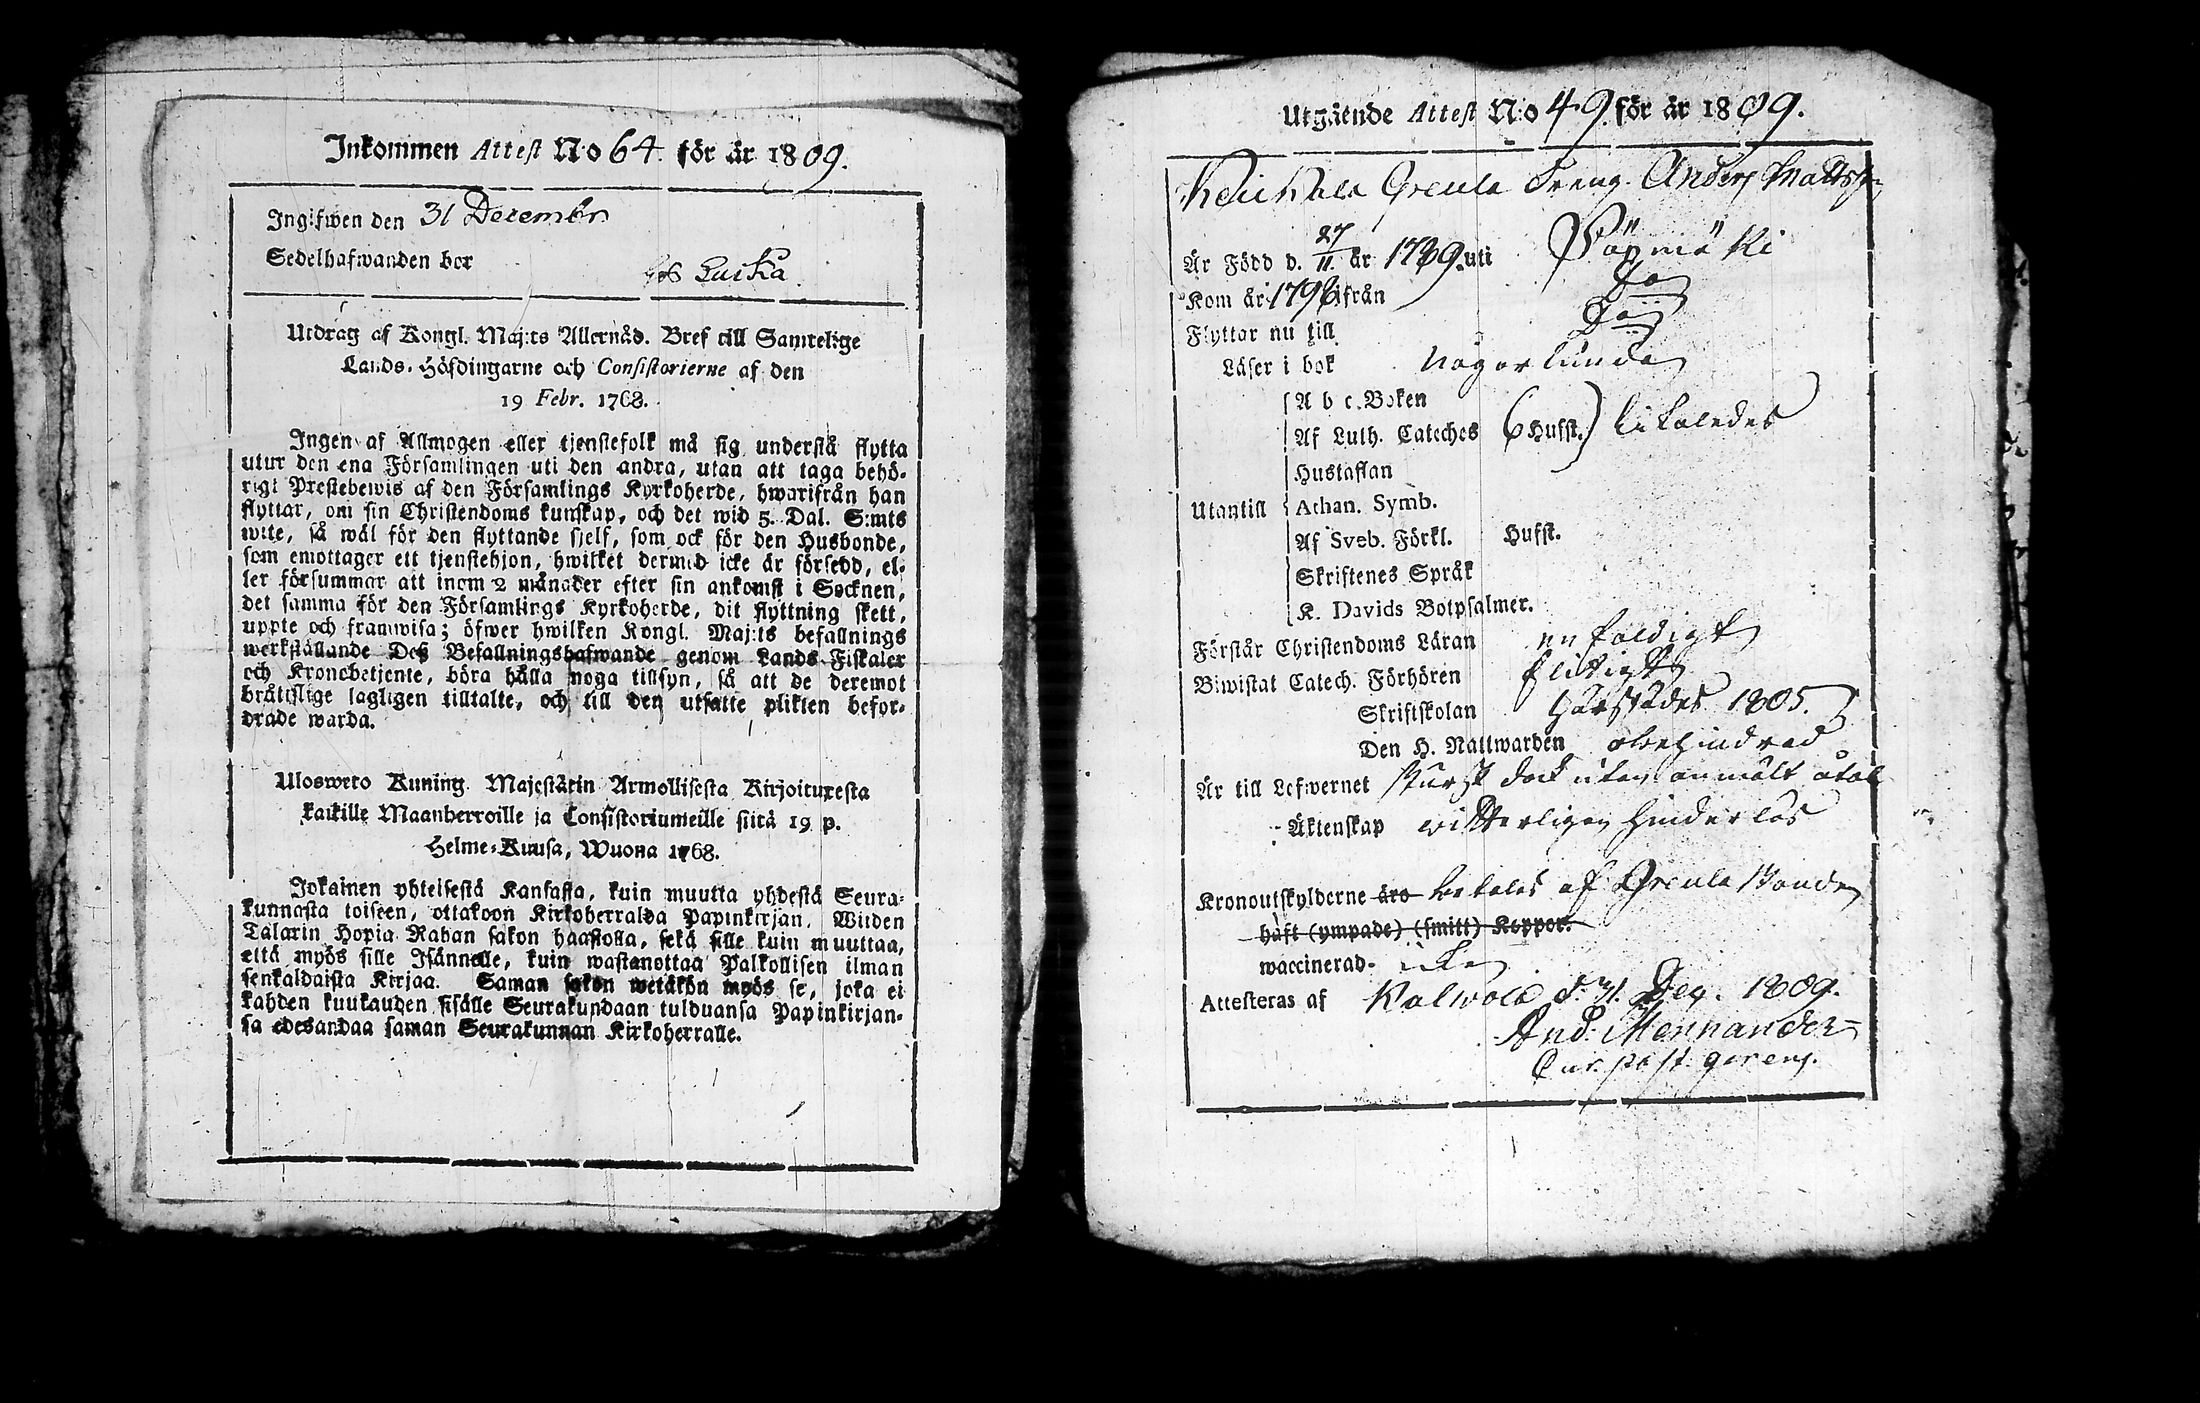 Inkommen Attest N:o 64. för år 1809.
Ingifwen den 31 Decembr
Sedelhafwanden bor
hos Lurka
Utdrag af Kongl. Maj:ts Allernåd. Bref till Samtelige
Lands-Höfdingarne och Consistorierne af den
19 Febr. 1768.
Ingen af Allmogen eller tjenstefolk må sig understå flytta
utur den ena Församlingen uti den andra, utan att taga behö-
rigt Prestebewis af den Församlings Kyrkoherde, hwarifrån han
flyttar, om sin Christendoms kunskap, och det wid 5. Dal. S:mts
wite, så wäl för den flyttande sjelf, som ock för den Husbonde,
som emottager ett tjenstehjon, hwilket dermed icke är försedd, el-
ler försummar att inom 2 månader efter sin ankomst i Socknen,
det samma för den Församlings Kyrkoherde, dit flyttning skett,
uppte och framwisa; öfwer hwilken Kongl. Maj:ts befallnings
werkställande Deß Befallningshafwande genom Lands-Fiskaler
och Kronobetjente, böra hålla noga tillsyn, så att de deremot
bråttslige lagligen tilltalte, och till den utsatte plikten befor-
drade warda.
Ulosweto Kuning. Majestätin Armollisesta Kirjoituxesta
kaikille Maanherroille ja Consistoriumeille siitä 19 p.
Helme-Kuusa, Wuona 1768.
Jokainen yhteisestä Kansasta, kuin muutta yhdestä Seura-
kunnasta toiseen, ottakoon Kirkoherralda Papinkirjan, Wiiden
Talarin Hopia Rahan sakon haastolla, sekä sille kuin muuttaa,
että myös sille Isännälle, kuin wastanottaa Palkollisen ilman
senkaldaista Kirjaa. Saman sakon wetäkön myös se, joka ei
kahden kuukauden sisälle Seurakundaan tulduansa Papinkirjan-
sa edesandaa saman Seurakunnan Kirkoherralle.
Utgäende Attest N:o 49. för år 1809.
Greula Dreng. Anders Mattsson
Är Född d. 27/11. år 1789. uti Pöpmäki
Kom år 1796. ifrån Do
Flyttar nu till Do
Läser i bok någorlunda
A b c. Boken
Af Luth. Cateches (6 Hufst.) likaledes
Hustaflan
Utantill Athan. Symb.
Af Sveb. Förkl. Hufst.
Skriftenes Språk
K. Davids Botpsalmer.
Förstår Christendoms Läran enfaldigt
Biwistat Catech. Förhören flitigt
Skriftskolan 1805.
Den H. Nattwarden obehindrad
Är till Lefwernet dock utan anmält åtal
Äktenskap witterligen hinderlös
Kronoutskylderne äro betalas af Greula Bonde
haft (ympade) (smitt) Koppor.
waccinerad. icke
Attesteras af Kalwola d. 31. Dec. 1809.
And. Mennander
Cur. past. gerens.